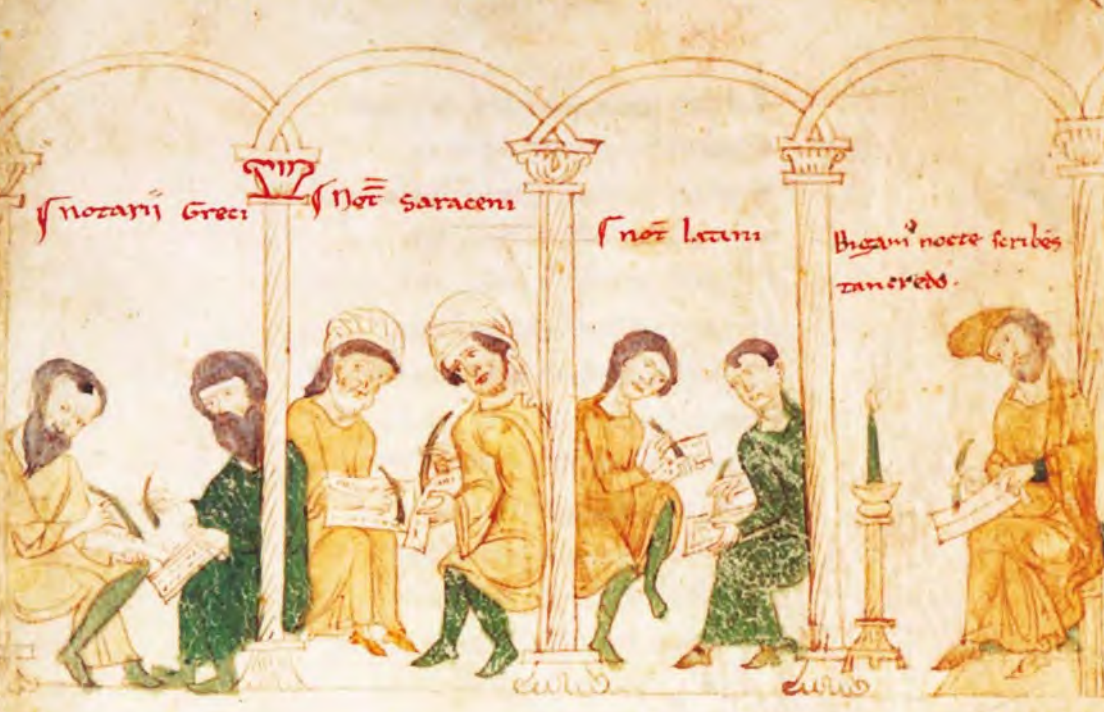 notarii Greci
Not Saraceni
not latini
Bigam nocte scribes
tancredo.